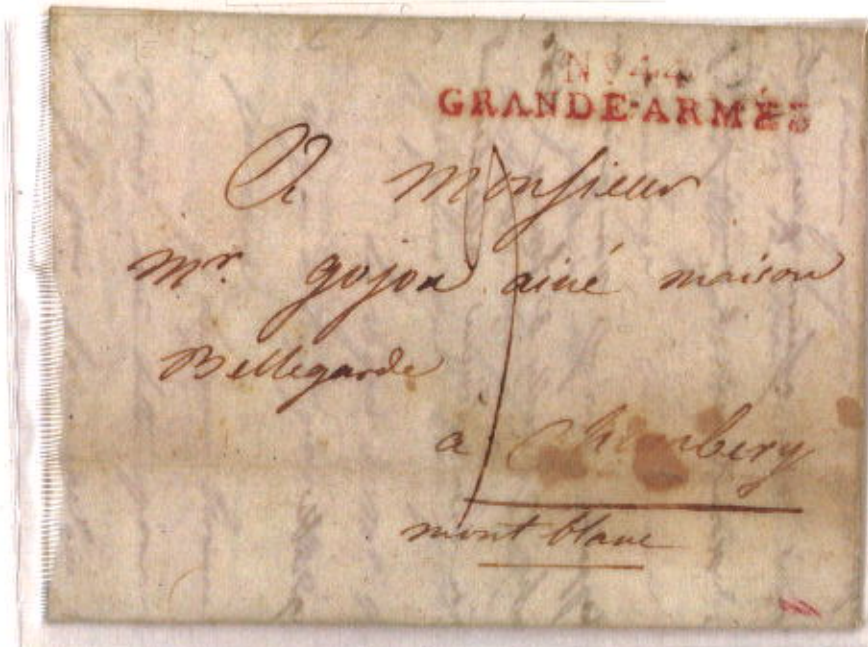 Nº 44
GRANDE-ARMÉE
A Monsieur
Mr. gojon ainé maison
Bellegarde
à Chambery
mont blanc